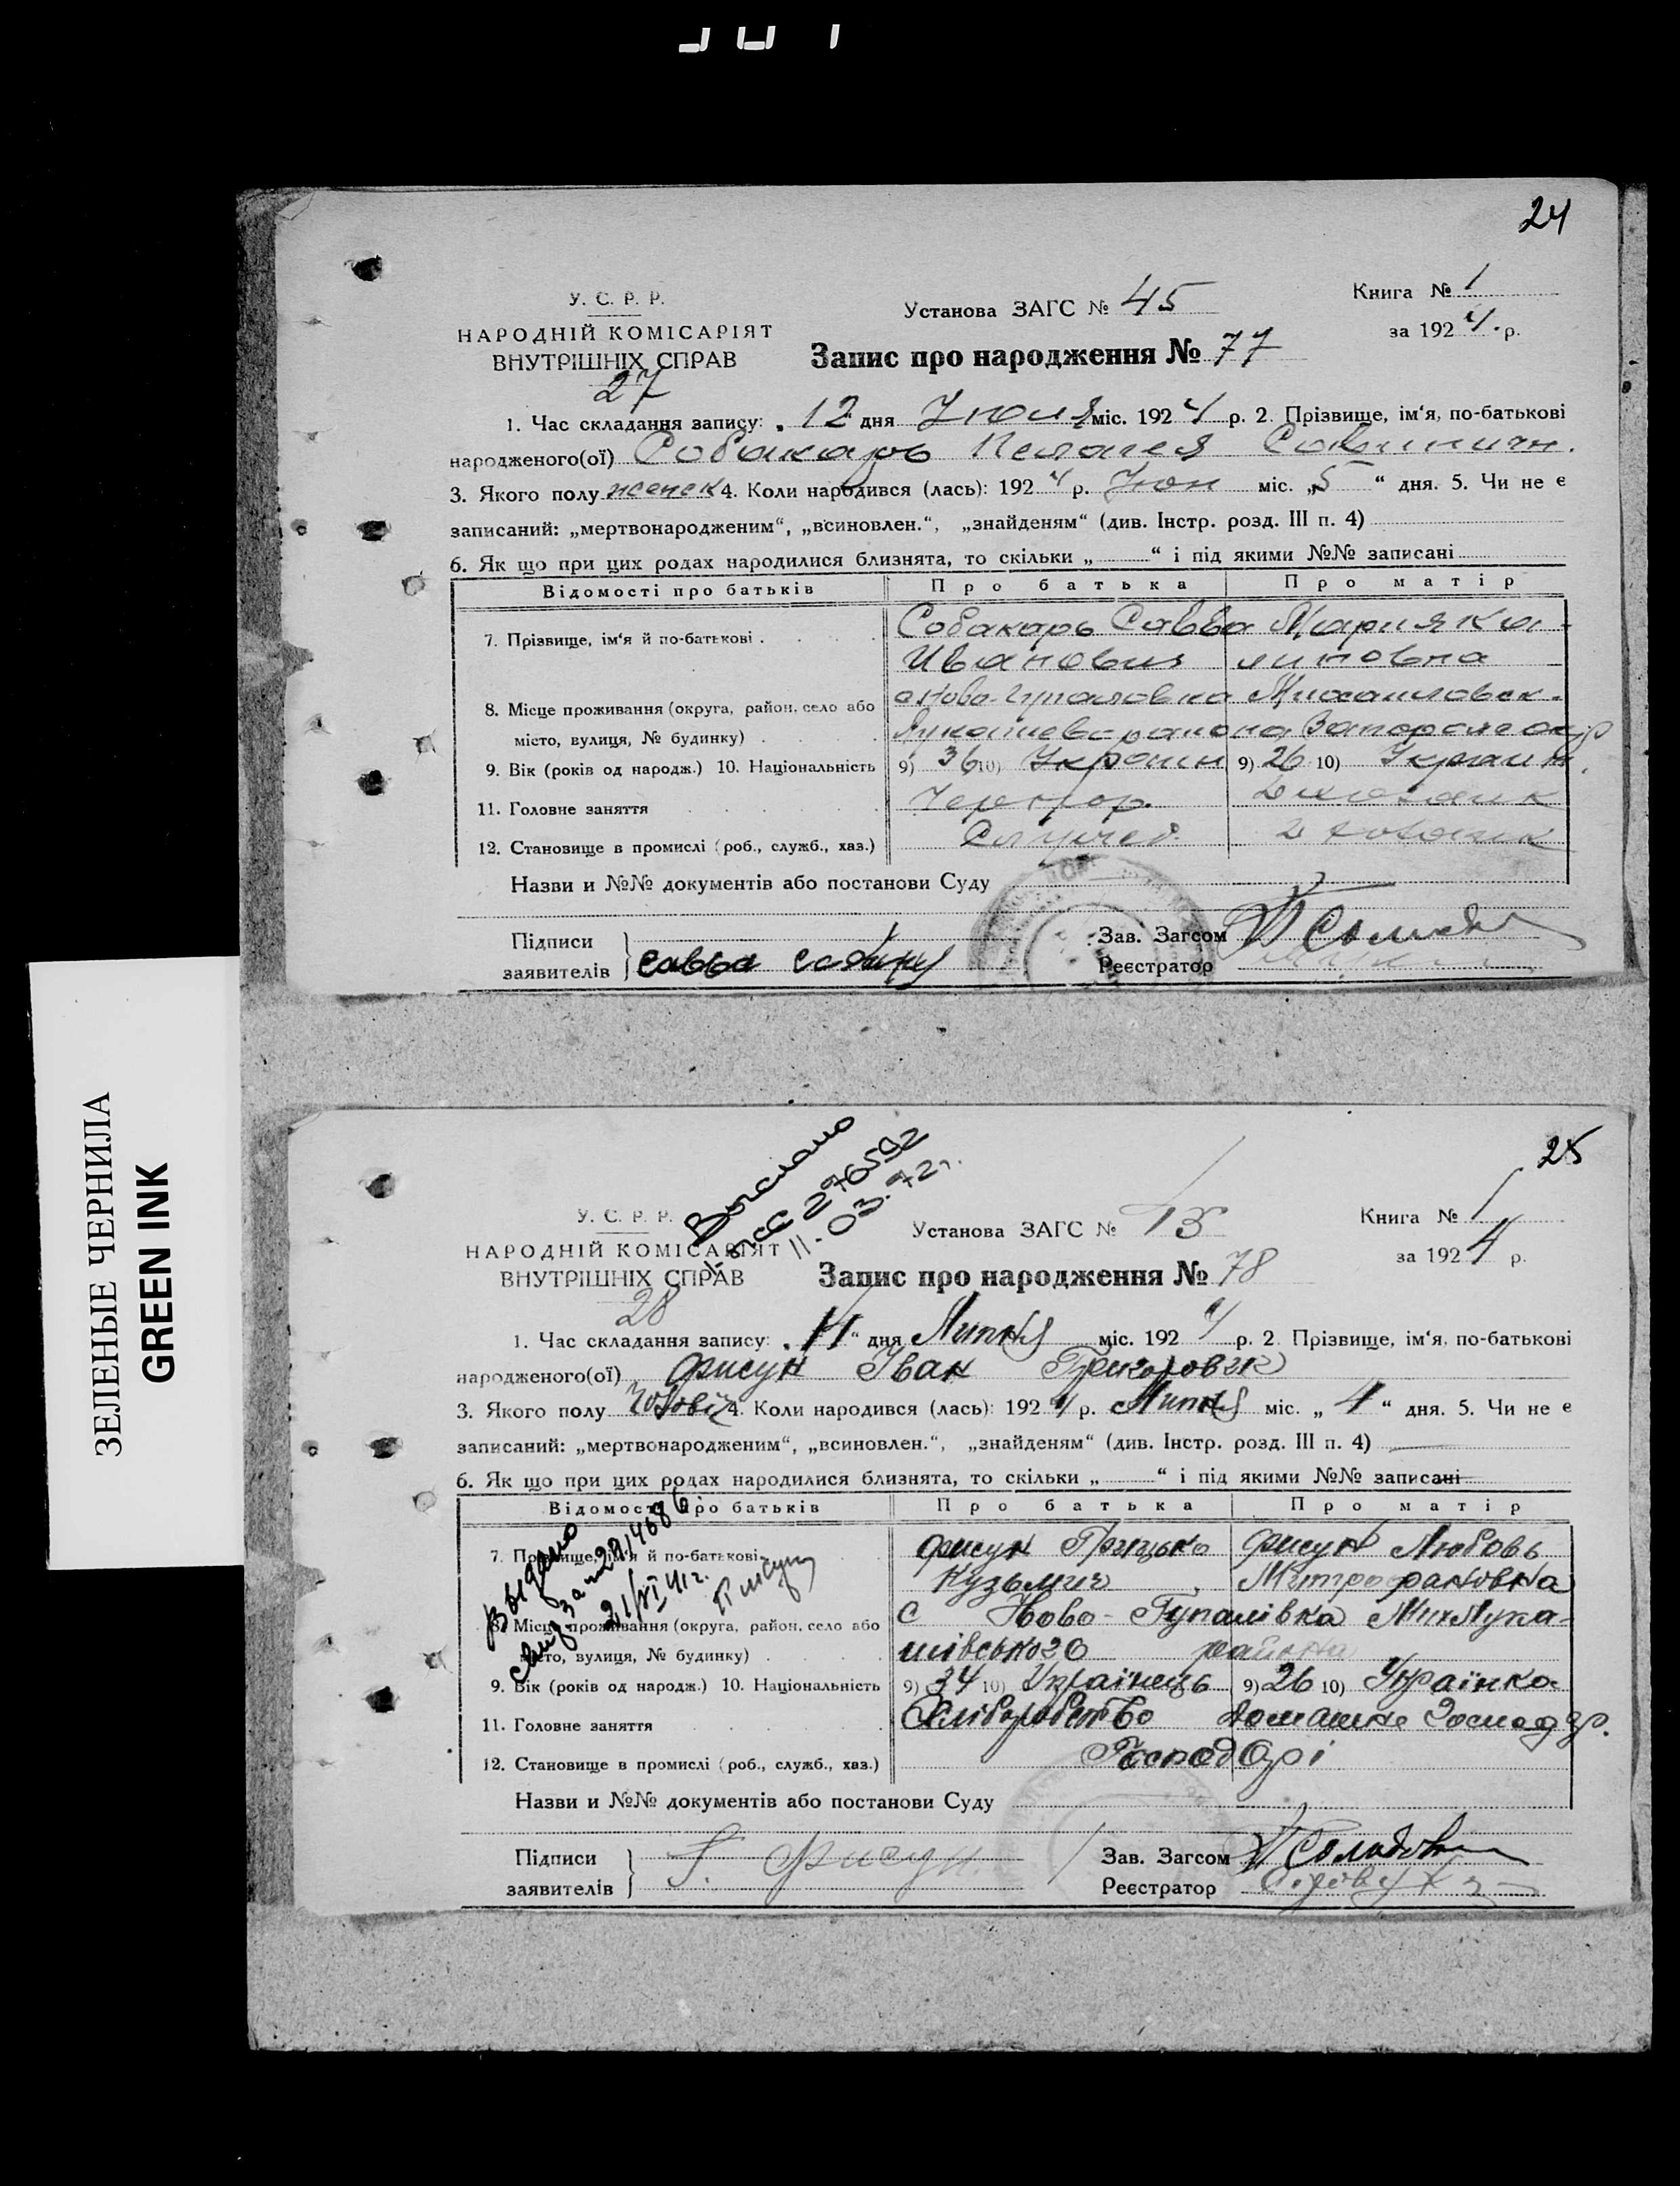 24
У. С. Р. Р.
НАРОДНІЙ КОМІСАРІЯТ
ВНУТРІШНІХ СПРАВ
27
Установа ЗАГС № 45
Запис про народження № 77
Книга № 1
за 1924 р.
1. Час складання запису: „12 дня Июля міс. 1924 р. 2. Прізвище, ім'я, по-батькові
народженого(ої) Собакарь Пелагея
3. Якого полу женск 4. Коли народився (лась): 1924 р. Июн міс. „5“ дня. 5. Чи не є
записаний: „мертвонародженим“, „всиновлен.“, „знайденям“ (див. Інстр. розд. III п. 4)
6. Як що при цих родах народилися близнята, то скільки „ “ і під якими №№ записані
Відомості про батьків Про батька Про матір
7. Прізвище, ім'я й по-батькові . Собакарь Савва Мария Ка-
Иванович линовна
8. Місце проживання (округа, район, село або
місто, вулиця, № будинку)
9. Вік (років од народж.) 10. Національність 9) 36 10) Украин 9) 26 10) Украин.
11. Головне заняття
12. Становище в промислі (роб., служб., хаз.)
Назви и №№ документів або постанови Суду
Підписи
заявителів Савва
Зав. Загсом
Реєстратор
ЗЕЛЕНЫЕ ЧЕРНИЛА
GREEN INK
25
Выслано
276592
11-03.72г.
У. С. Р. Р.
НАРОДНІЙ КОМІСАРІЯТ
ВНУТРІШНІХ СПРАВ
28
Установа ЗАГС №
Запис про народження № 78
Книга № 1
за 1924 р.
1. Час складання запису: „ “ дня Липня міс. 1924 р. 2. Прізвище, ім'я, по-батькові
народженого(ої) Фисун Іван Григорович
3. Якого полу Чоловіч 4. Коли народився (лась): 1924 р. Липня міс. „ “ дня. 5. Чи не є
записаний: „мертвонародженим“, „всиновлен.“, „знайденям“ (див. Інстр. розд. III п. 4)
6. Як що при цих родах народилися близнята, то скільки „ “ і під якими №№ записані
Відомості про батьків Про батька Про матір
Выдано
7. Прізвище, ім'я й по-батькові Фисун Грицько Фисун Любовь
Кузьмич Митрофановна
8. Місце проживання (округа, район, село або С Ново-Гупалівка Мих Лука-
місто, вулиця, № будинку) . шівського району
9. Вік (років од народж.) 10. Національність 9) 34 10) Українець 9) 26 10) Українка
11. Головне заняття Хліборобство домашнє господар.
12. Становище в промислі (роб., служб., хаз.) Господарі
Назви и №№ документів або постанови Суду
Підписи
заявителів Фисун
Зав. Загсом
Реєстратор